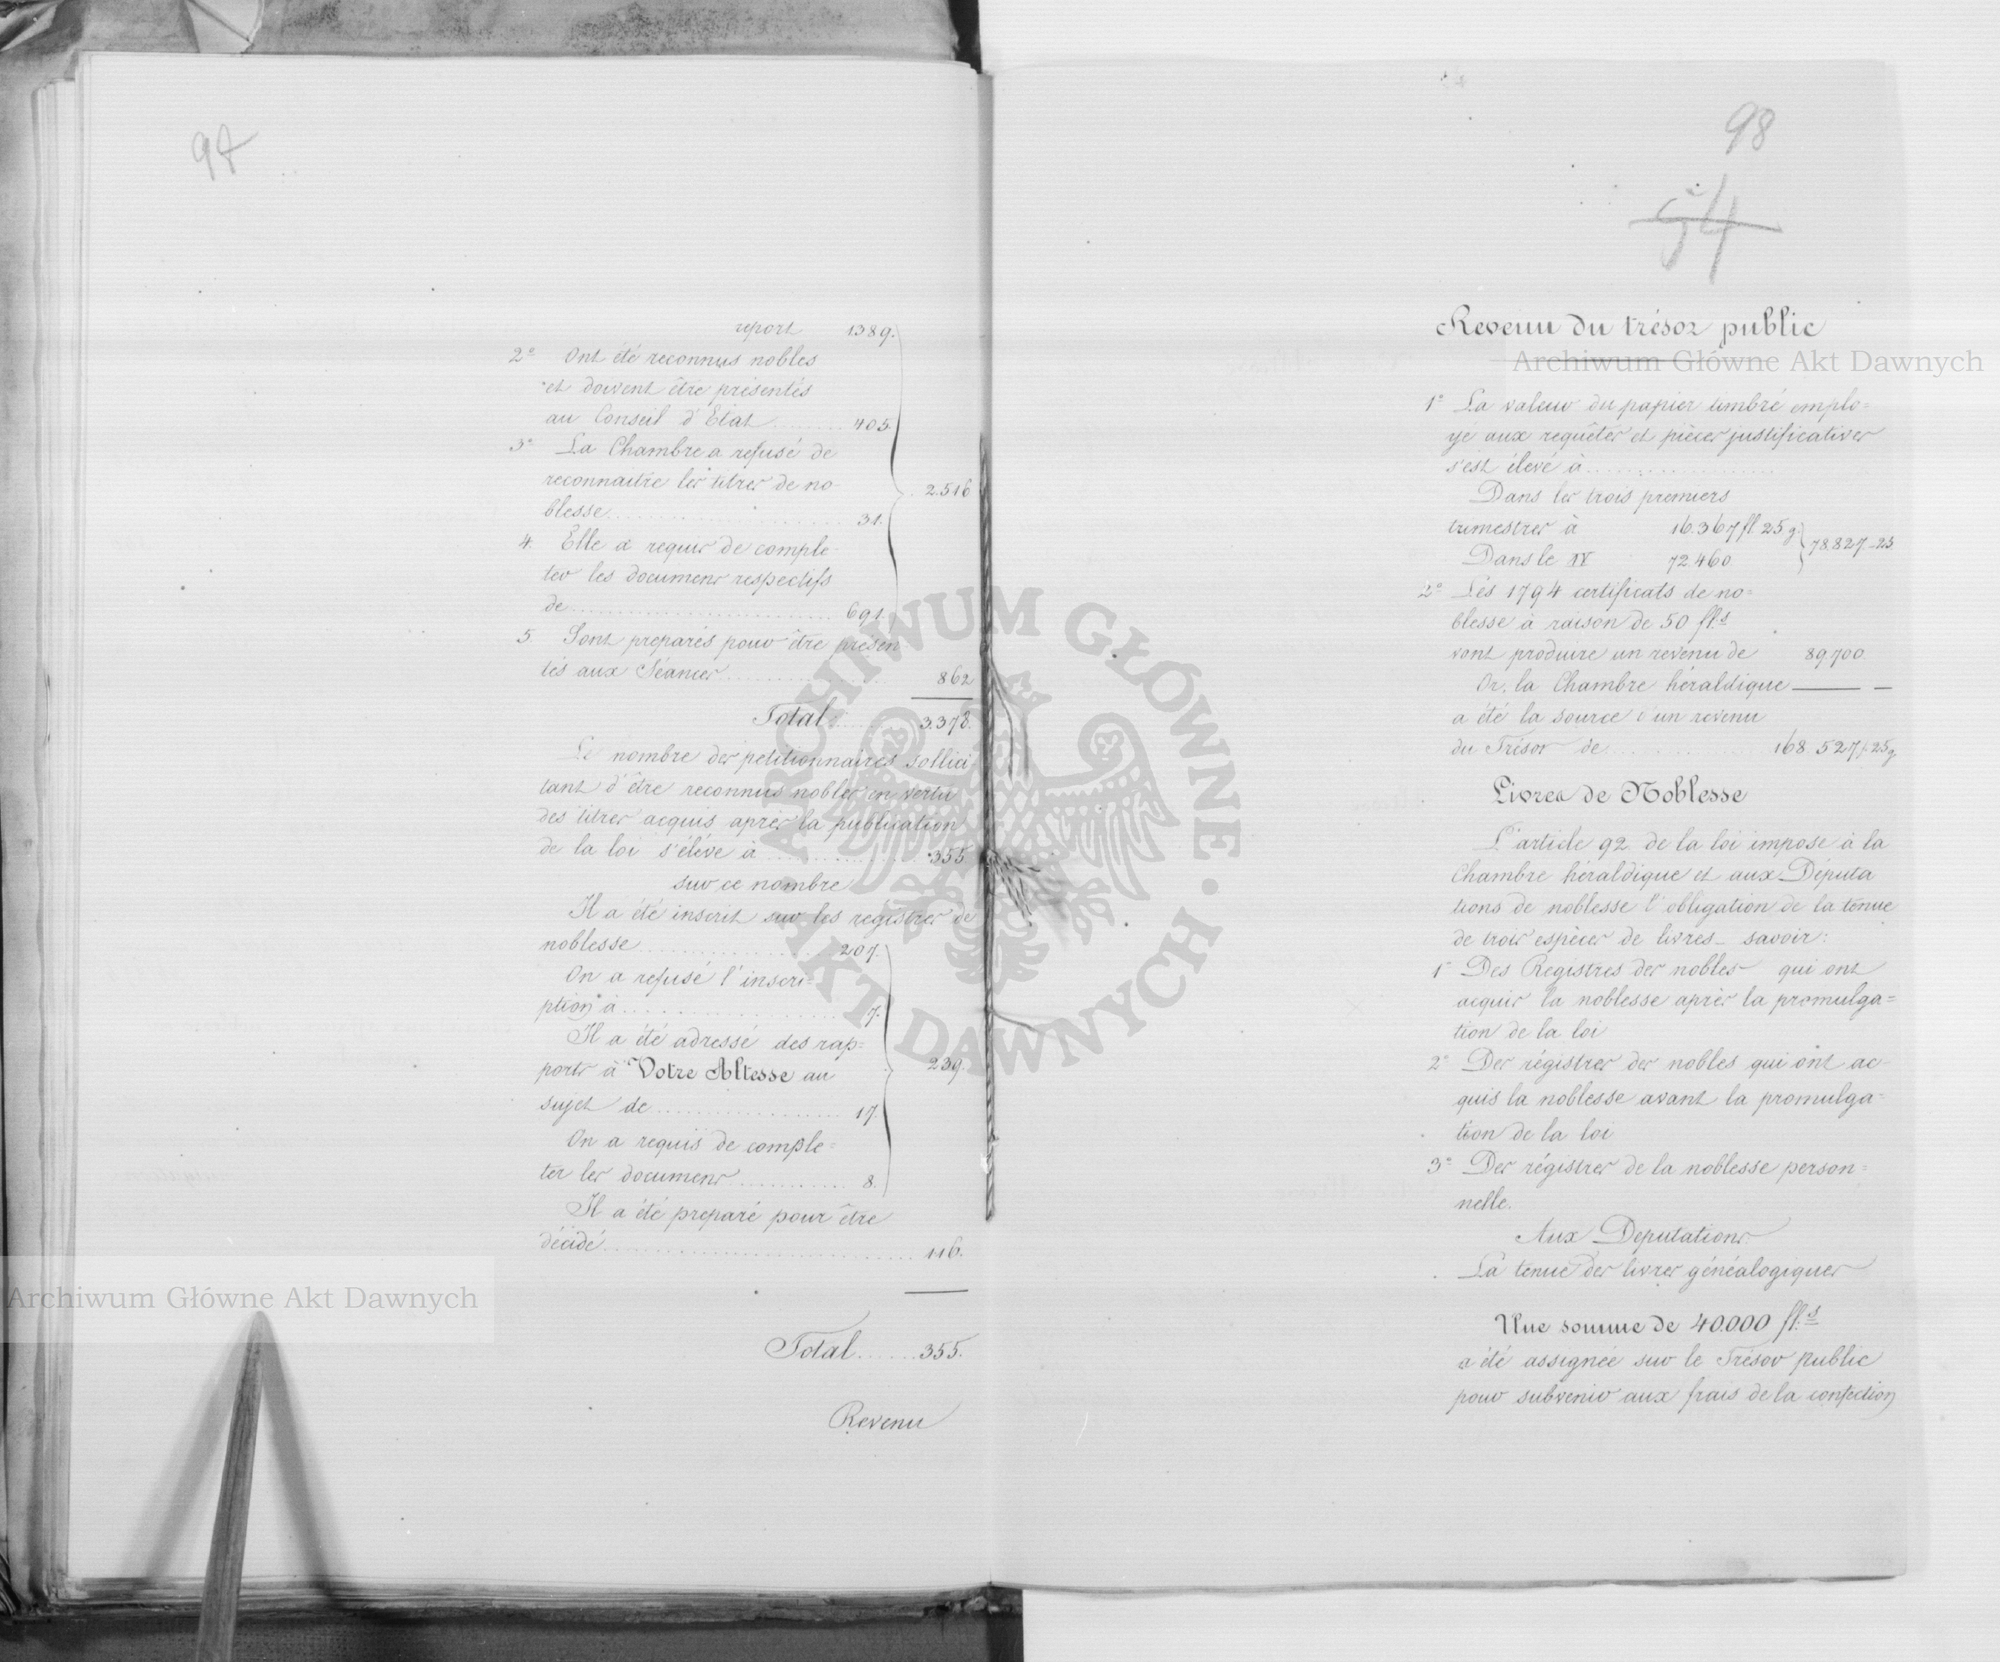 97
report 1389.
2º Ont été reconnus nobles
et doivent être présentés
au Conseil d'Etat ........ 405.
3º La Chambre a refusé de
reconnaitre les titres de no-
blesse ........ 31.
2.516
4. Elle a requis de comple
ter les documens respectifs
de ........ 691.
5 Sont preparés pour être présen
tés aux Séances ........ 862
Total ........ 3.378.
Le nombre des petitionnaires sollici
tant d'être reconnus nobles en vertu
des titres acquis après la publication
de la loi s'élève à ........ 355
sur ce nombre
Il a été inscrit sur les registres de
noblesse ........ 207.
On a refusé l'inscri=
ption à ........ 7.
Il a été adressé des rap=
ports à Votre Altesse au
239.
sujet de ........ 17.
On a requis de comple=
ter les documens ........ 8.
Il a été preparé pour être
décidé ........ 116.
Total ...... 355.
Revenu
98
94
Revenu du trésor public
1º La valeur du papier timbré emplo=
yé aux requêtes et pièces justificatives
s'est élevé à ........
Dans les trois premiers
trimestres à 16.367 fl 25 g.
78.827.-25.
Dans le IV 72.460.
2º Les 1794 certificats de no=
blesse à raison de 50 fl.s
vont produire un revenu de 89700.
Or, la Chambre héraldique
a été la source d'un revenu
du Trésor de ........ 168.527 f. 25 g.
Livres de Noblesse
L'article 92. de la loi impose à la
Chambre héraldique et aux Députa
tions de noblesse l'obligation de la tenue
de trois espèces de livres - savoir:
1º Des Registres des nobles qui ont
acquis la noblesse après la promulga=
tion de la loi
2º Des régistres des nobles qui ont ac
quis la noblesse avant la promulga=
tion de la loi
3º Des régistres de la noblesse person=
nelle.
Aux Deputations
La tenue des livres généalogiques
Une somme de 40.000 fl.s
a été assignée sur le Trésor public
pour subvenir aux frais de la confection
Archiwum Główne Akt Dawnych
Archiwum Główne Akt Dawnych
ARCHIWUM GŁÓWNE · AKT DAWNYCH ·